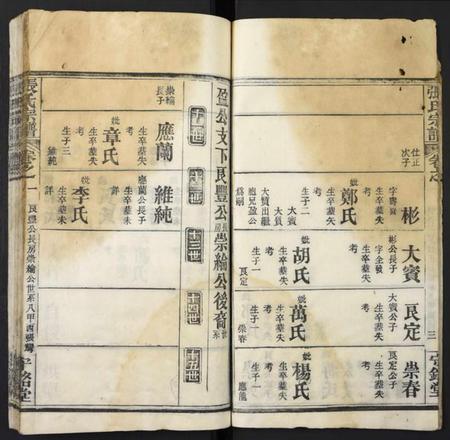 張氏宗譜
卷之
三
仕正
次子
彬
字
生卒葬失
考
妣鄭氏
生卒葬失
考
生子二
大賓
大賓出繼
胞兄盈公
為嗣
大賓
彬公長子
字金發
生卒葬失
考
妣胡氏
生卒葬失
考
生子一
良定
良定
大賓公子
生卒葬失
考
妣萬氏
生卒葬失
考
生子一
崇春
崇春
良定公子
生卒葬失
考
妣楊氏
生卒葬失
考
生子一
應龍
盈公支下良豐公長房崇綸公後裔世系
十一世
十二世
十三世
十四世
十五世
崇綸
長子
應蘭
生卒葬失
考
妣章氏
生卒葬失
考
生子三
維純
維純
應蘭公長子
生卒葬未
詳
妣李氏
生卒葬未
詳
張氏宗譜
卷之一
良豐公長房崇綸公世系八甲西張